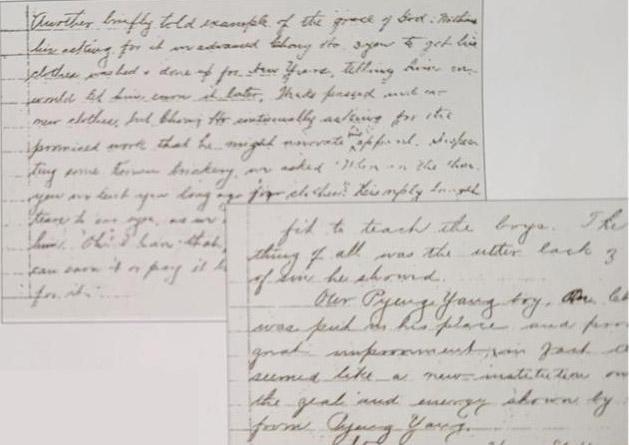 Another briefly told example of the grace of God. Without
his asking for it we advanced Chong Ho 3 yen to get his
clothes washed & done up for New Years, telling him we
would let him earn it later. Weeks passed and
new clothes, but Chong Ho continually asking for the
promised work that he might renovate his apparel.
ting some Korean trickery, we asked "Where is the
you we lent you long ago for clothes". His reply brought
tears to our eyes, as we
him. Oh! I have that,
can earn it or pay it
for it."
fit to teach the boys. The
thing of all was the utter lack
of sin he showed.
Our Pyeng Yang boy,
was put in his place and
great improvement, in fact
seemed like a new institution
the zeal and energy shown by
from Pyeng Yang.